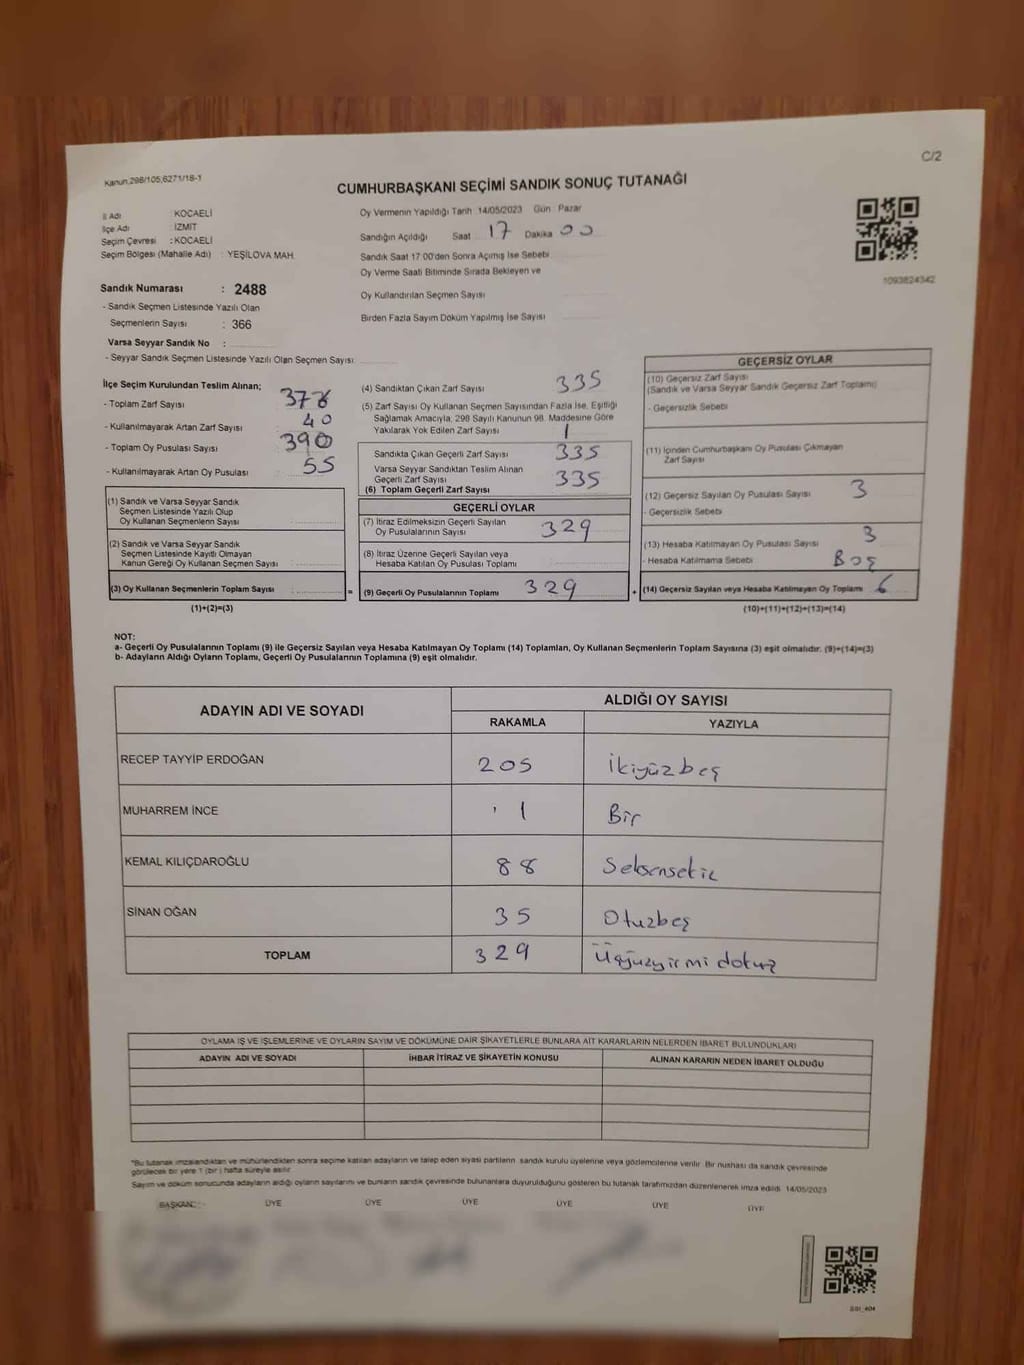 Kanun,298/105,6271/18-1
C/2
CUMHURBAŞKANI SEÇİMİ SANDIK SONUÇ TUTANAĞI
İl Adı : KOCAELİ
İlçe Adı : İZMİT
Seçim Çevresi : KOCAELİ
Seçim Bölgesi (Mahalle Adı) : YEŞİLOVA MAH.
Sandık Numarası : 2488
- Sandık Seçmen Listesinde Yazılı Olan
Seçmenlerin Sayısı : 366
Varsa Seyyar Sandık No :
- Seyyar Sandık Seçmen Listesinde Yazılı Olan Seçmen Sayısı
Oy Vermenin Yapıldığı Tarih 14/05/2023 Gün Pazar
Sandığın Açıldığı Saat 17 Dakika 00
Sandık Saat 17:00'den Sonra Açmış İse Sebebi
Oy Verme Saati Bitiminde Sırada Bekleyen ve
Oy Kullandırılan Seçmen Sayısı
Birden Fazla Sayım Döküm Yapılmış İse Sayısı
1093824342
İlçe Seçim Kurulundan Teslim Alınan;
- Toplam Zarf Sayısı 376
- Kullanılmayarak Artan Zarf Sayısı 40
- Toplam Oy Pusulası Sayısı 390
- Kullanılmayarak Artan Oy Pusulası 55
(1) Sandık ve Varsa Seyyar Sandık
Seçmen Listesinde Yazılı Olup
Oy Kullanan Seçmenlerin Sayısı
(2) Sandık ve Varsa Seyyar Sandık
Seçmen Listesinde Kayıtlı Olmayan
Kanun Gereği Oy Kullanan Seçmen Sayısı
(3) Oy Kullanan Seçmenlerin Toplam Sayısı =
(1)+(2)=(3)
(4) Sandıktan Çıkan Zarf Sayısı 335
(5) Zarf Sayısı Oy Kullanan Seçmen Sayısından Fazla İse, Eşitliği
Sağlamak Amacıyla, 298 Sayılı Kanunun 98. Maddesine Göre
Yakılarak Yok Edilen Zarf Sayısı 1
Sandıkta Çıkan Geçerli Zarf Sayısı 335
Varsa Seyyar Sandıktan Teslim Alınan
Geçerli Zarf Sayısı 335
(6) Toplam Geçerli Zarf Sayısı
GEÇERLİ OYLAR
(7) İtiraz Edilmeksizin Geçerli Sayılan
Oy Pusulalarının Sayısı 329
(8) İtiraz Üzerine Geçerli Sayılan veya
Hesaba Katılan Oy Pusulası Toplamı
(9) Geçerli Oy Pusulalarının Toplamı 329 +
GEÇERSİZ OYLAR
(10) Geçersiz Zarf Sayısı
(Sandık ve Varsa Seyyar Sandık Geçersiz Zarf Toplamı)
- Geçersizlik Sebebi
(11) İçinden Cumhurbaşkanı Oy Pusulası Çıkmayan
Zarf Sayısı
(12) Geçersiz Sayılan Oy Pusulası Sayısı 3
- Geçersizlik Sebebi
(13) Hesaba Katılmayan Oy Pusulası Sayısı 3
- Hesaba Katılmama Sebebi Boş
(14) Geçersiz Sayılan veya Hesaba Katılmayan Oy Toplamı 6
(10)+(11)+(12)+(13)=(14)
NOT:
a- Geçerli Oy Pusulalarının Toplamı (9) ile Geçersiz Sayılan veya Hesaba Katılmayan Oy Toplamı (14) Toplamları, Oy Kullanan Seçmenlerin Toplam Sayısına (3) eşit olmalıdır. (9)+(14)=(3)
b- Adayların Aldığı Oyların Toplamı, Geçerli Oy Pusulalarının Toplamına (9) eşit olmalıdır.
ADAYIN ADI VE SOYADI ALDIĞI OY SAYISI
RAKAMLA YAZIYLA
RECEP TAYYİP ERDOĞAN 205 İkiyüzbeş
MUHARREM İNCE 1 Bir
KEMAL KILIÇDAROĞLU 88 Seksensekiz
SİNAN OĞAN 35 Otuzbeş
TOPLAM 329 Üçyüzyirmi dokuz
OYLAMA İŞ VE İŞLEMLERİNE VE OYLARIN SAYIM VE DÖKÜMÜNE DAİR ŞİKAYETLERLE BUNLARA AİT KARARLARIN NELERDEN İBARET BULUNDUKLARI
ADAYIN ADI VE SOYADI İHBAR İTİRAZ VE ŞİKAYETİN KONUSU ALINAN KARARIN NEDEN İBARET OLDUĞU
*Bu tutanak imzalandıktan ve mühürlendikten sonra seçime katılan adayların ve talep eden siyasi partilerin sandık kurulu üyelerine veya gözlemcilerine verilir. Bir nushası da sandık çevresinde
görülecek bir yere 1 (bir ) hafta süreyle asılır.
Sayım ve döküm sonucunda adayların aldığı oyların sayılarını ve bunların sandık çevresinde bulunanlara duyurulduğunu gösteren bu tutanak tarafımızdan düzenlenerek imza edildi. 14/05/2023
BAŞKAN: ÜYE ÜYE ÜYE ÜYE ÜYE ÜYE
SSI_404